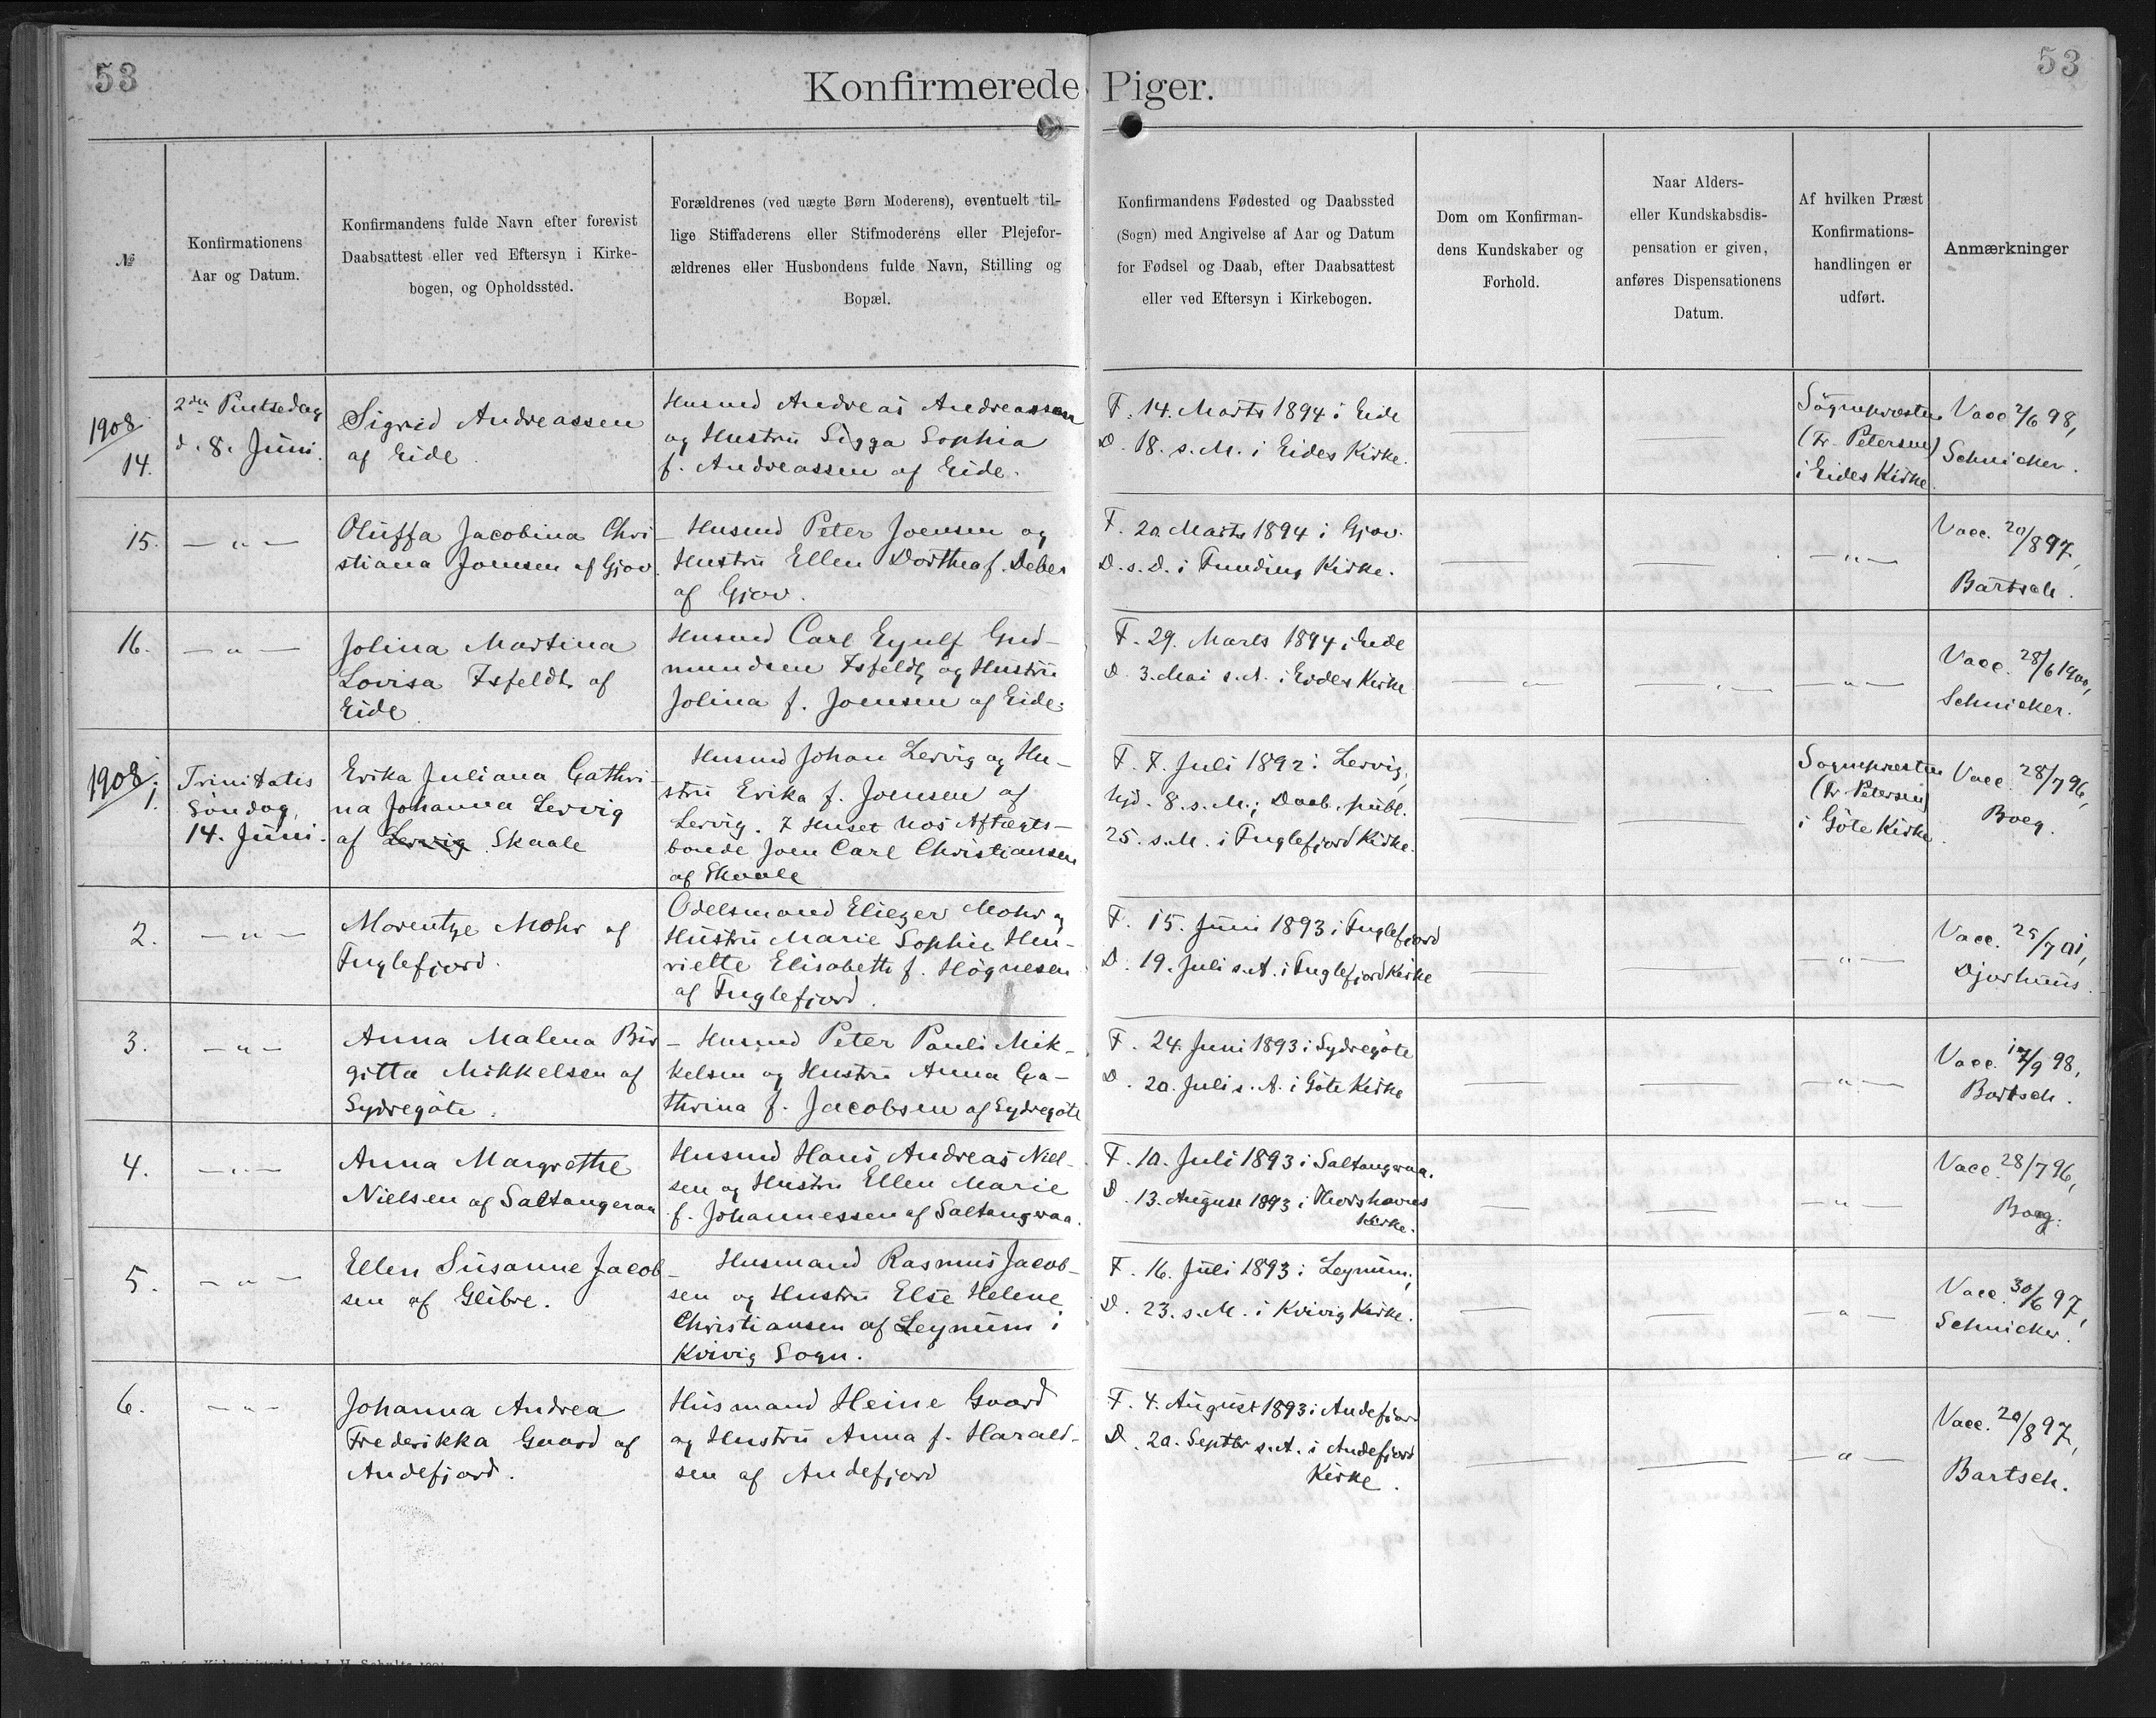 53
53
Konfirmerede Piger.
№
Konfirmationens
Aar og Datum.
Konfirmandens fulde Navn efter forevist
Daabsattest eller ved Eftersyn i Kirke-
bogen, og Opholdssted.
Forældrenes (ved uægte Børn Moderens), eventuelt til-
lige Stiffaderens eller Stifmoderens eller Plejefor-
ældrenes eller Husbondens fulde Navn, Stilling og
Bopæl.
Konfirmandens Fødested og Daabssted
(Sogn) med Angivelse af Aar og Datum
for Fødsel og Daab, efter Daabsattest
eller ved Eftersyn i Kirkebogen.
Dom om Konfirman-
dens Kundskaber og
Forhold.
Naar Alders-
eller Kundskabsdis-
pensation er given,
anføres Dispensationens
Datum.
Af hvilken Præst
Konfirmations-
handlingen er
udført.
Anmærkninger
1908
14.
2den Pintsedag
d. 8. Juni.
Sigrid Andreassen
af Eide.
Husmd Andreas Andreassen
og Hustru Sigga Sophia
f. Andreassen af Eide.
F. 14. Marts 1894 i Eide
D. 18. s. M. i Eides Kirke.
Sognepræsten
(Fr. Petersen)
i Eides Kirke.
Vacc. 2/6 98,
Schnicker.
15.
— " —
Oluffa Jacobina Chri-
stiana Joensen af Gjov.
Husmd Peter Joensen og
Hustru Ellen Dorthea f. Debes
af Gjov.
F. 20. Marts 1894 i Gjov.
D. s. D. i Funding Kirke.
— " —
Vacc. 20/8 97,
Bartsch.
16.
— " —
Jolina Martina
Lovisa Isfeldt af
Eide.
Husmd Carl Eyulf Gud-
mundsen Isfeldt og Hustru
Jolina f. Joensen af Eide.
F. 29. Marts 1894 i Eide
D. 3. Mai s. A. i Eides Kirke
— " —
— " —
— " —
Vacc. 28/6 1900,
Schnicker.
1908
1.
Trinitatis
Söndag,
14. Juni.
Erika Juliana Cathri-
na Johanna Lervig
af Lervig Skaale
Husmd Johan Lervig og Hu-
stru Erika f. Joensen af
Lervig. I Huset hos Aftægts-
bonde Joen Carl Christiansen
af Skaale
F. 7. Juli 1892 i Lervig,
hjd. 8. s. M.; Daab. publ.
25. s. M. i Fuglefjord Kirke.
Sognepræsten
(Fr. Petersen)
i Göte Kirke.
Vacc. 28/7 96,
Boeg.
2.
— " —
Morentze Mohr af
Fuglefjord.
Odelsmand Eliezer Mohr og
Hustru Marie Sophie Hen-
riette Elisabeth f. Högnesen
af Fuglefjord.
F. 15. Juni 1893 i Fuglefjord
D. 19. Juli s. A. i Fuglefjord Kirke
— " —
Vacc. 25/7 01,
Djorhuus.
3.
— " —
Anna Malena Bir-
gitta Mikkelsen af
Sydregöte.
Husmd Peter Pauli Mik-
kelsen og Hustru Anna Ca-
thrina f. Jacobsen af Sydregöte
F. 24. Juni 1893 i Sydregöte
D. 20. Juli s. A. i Göte Kirke
— " —
Vacc. 17/9 98,
Bartsch.
4.
— " —
Anna Margrethe
Nielsen af Saltangeraa
Husmd Hans Andreas Niel-
sen og Hustru Ellen Marie
f. Johannessen af Saltangeraa.
F. 10. Juli 1893 i Saltangeraa.
D. 13. August 1893 i Thorshavns
Kirke.
— " —
Vacc. 28/7 96,
Boeg.
5.
— " —
Ellen Susanne Jacob-
sen af Glibre.
Husmand Rasmus Jacob-
sen og Hustru Else Helene
Christiansen af Leynum i
Kvivig Sogn.
F. 16. Juli 1893 i Leynum;
D. 23. s. M. i Kvivig Kirke.
— " —
Vacc. 30/6 97,
Schnicker.
6.
— " —
Johanna Andrea
Frederikka Gaard af
Andefjord.
Husmand Heine Gaard
og Hustru Anna f. Harald-
sen af Andefjord
F. 4. August 1893 i Andefjord
D. 20. Septbr s. A. i Andefjord
Kirke.
— " —
Vacc. 20/8 97,
Bartsch.